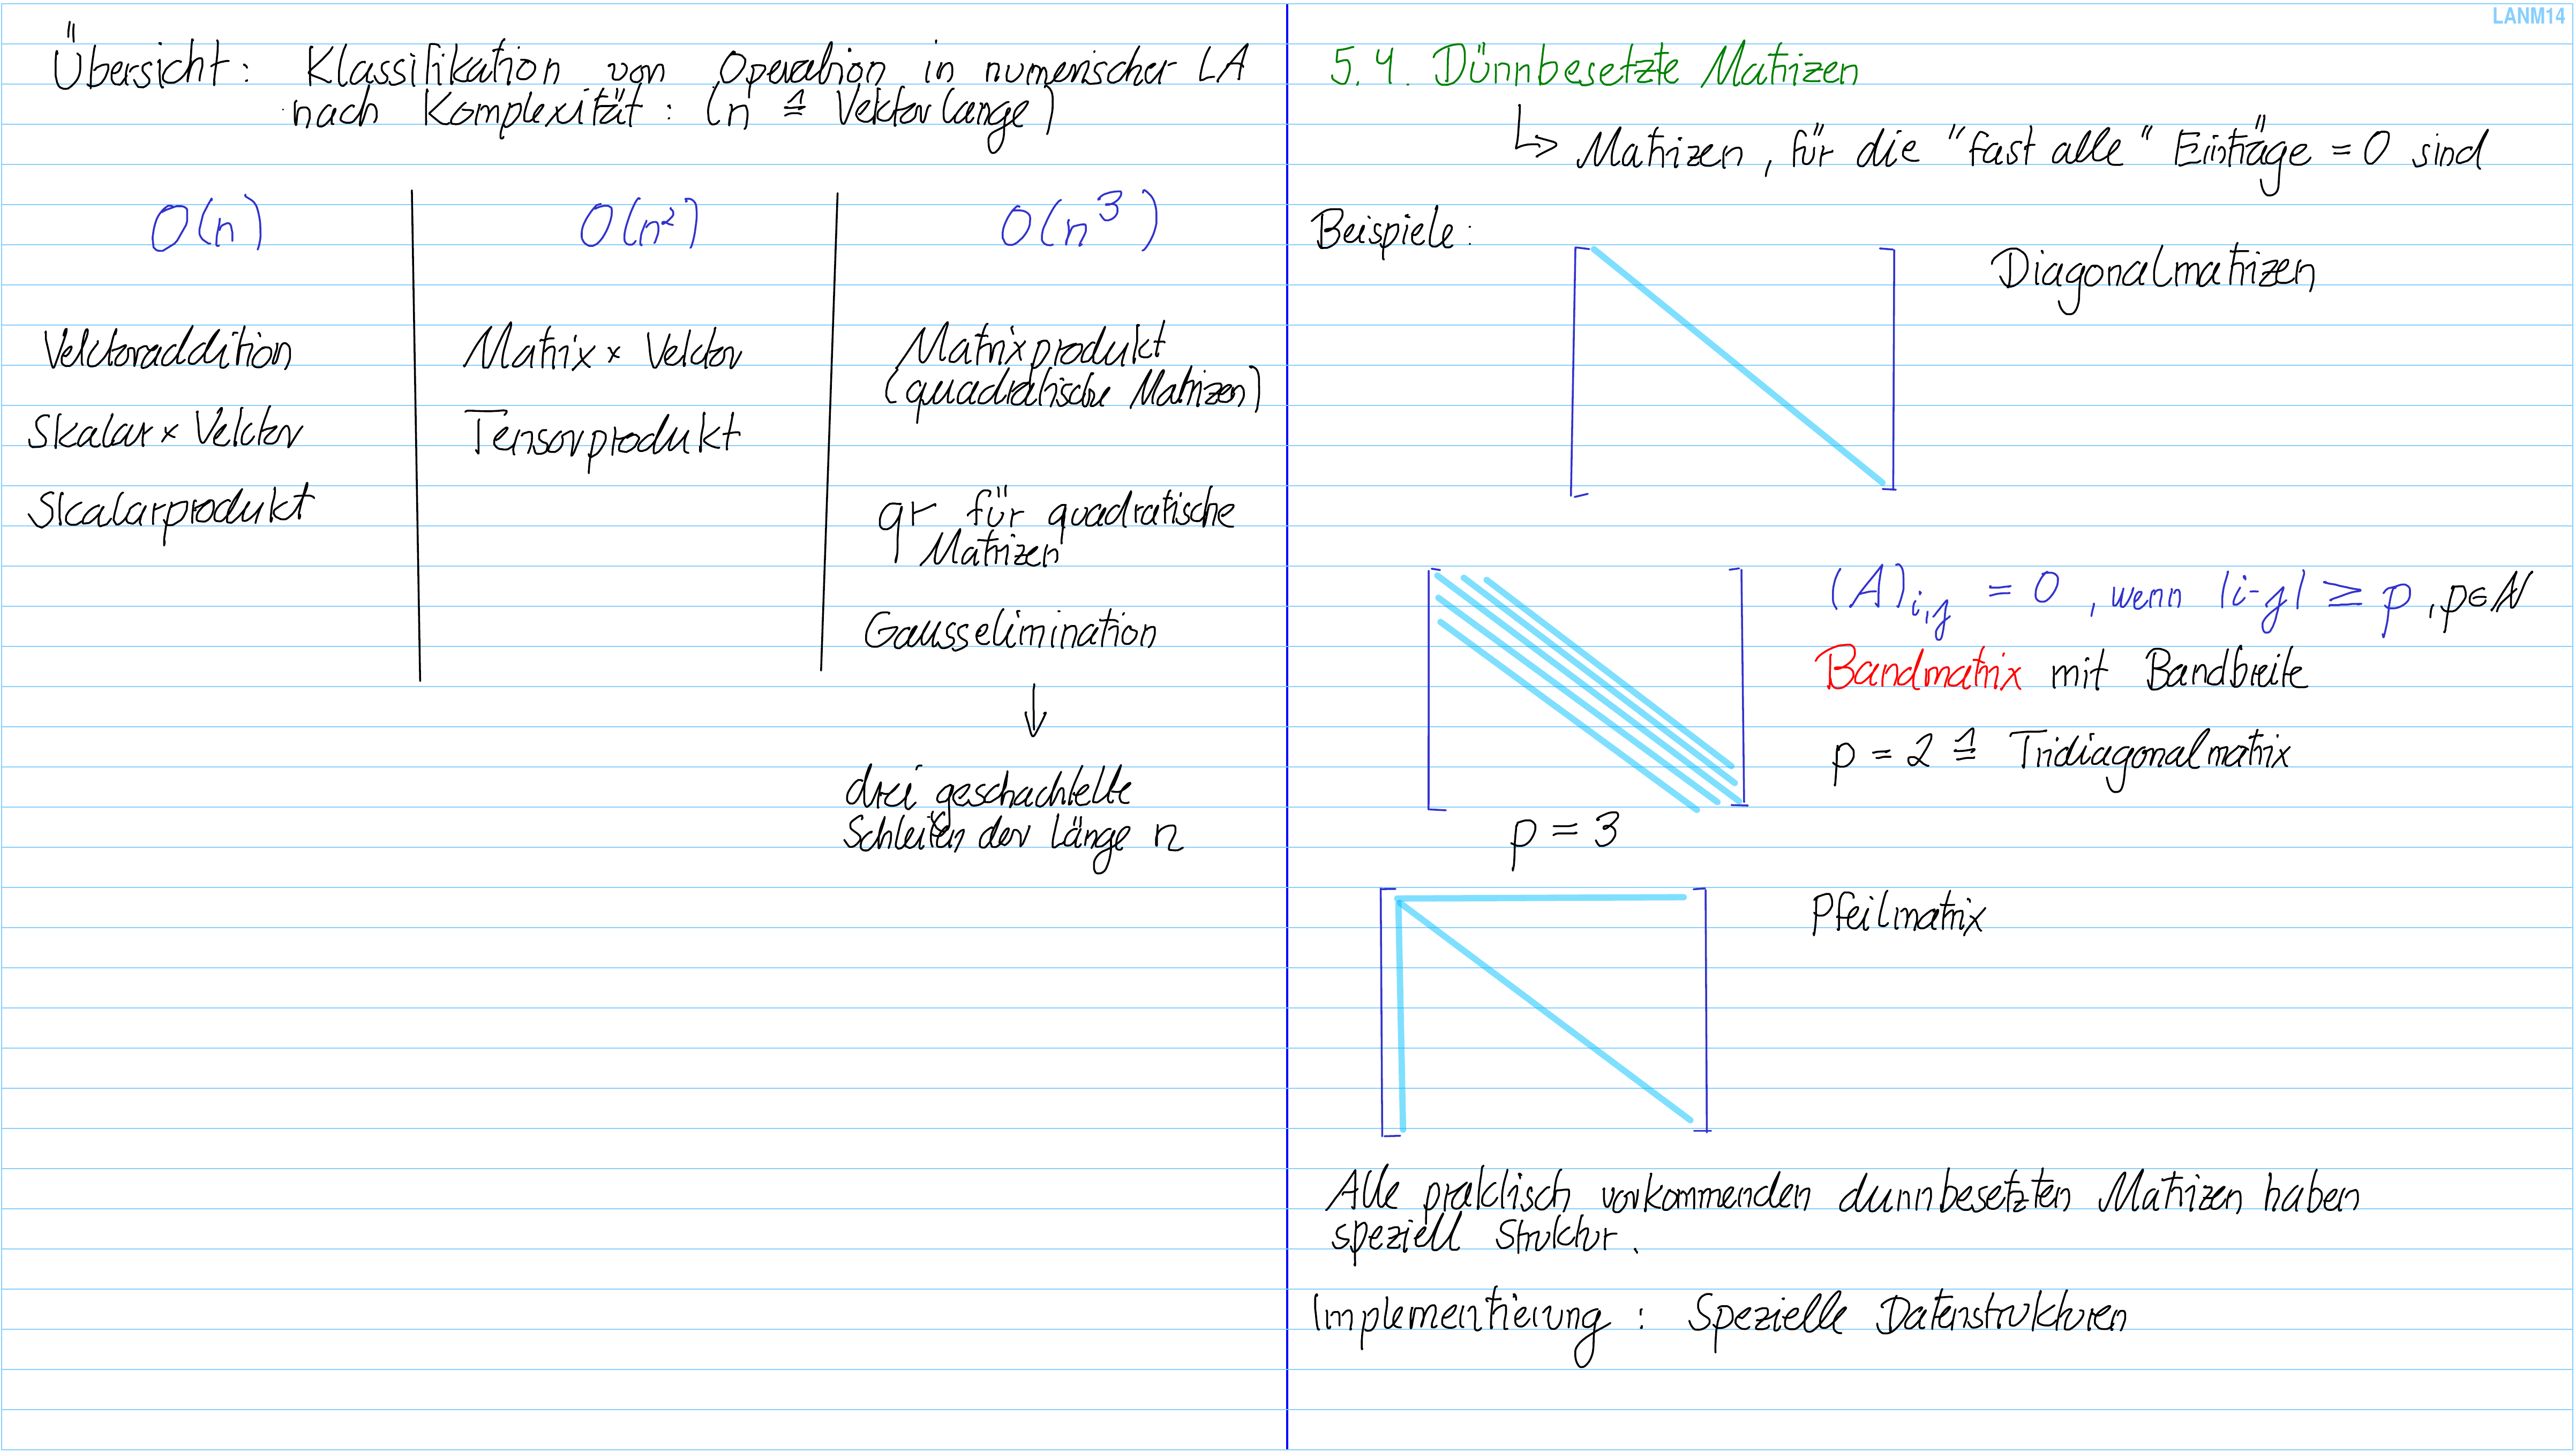 Übersicht: Klassifikation von Operation in numerischer LA
nach Komplexität: (n ≙ Vektorlänge)
O(n)
Vektoraddition
Skalar × Vektor
Skalarprodukt
O(n²)
Matrix × Vektor
Tensorprodukt
O(n³)
Matrixprodukt
(quadratische Matrizen)
qr für quadratische
Matrizen
Gausselimination
↓
drei geschachtelte
Schleifen der Länge n
LANM14
5.4. Dünnbesetzte Matrizen
↳ Matrizen, für die "fast alle" Einträge = 0 sind
Beispiele:
Diagonalmatrizen
(A)i,j = 0, wenn |i-j| ≥ p, p∈ℕ
Bandmatrix mit Bandbreite
p = 2 ≙ Tridiagonalmatrix
p = 3
Pfeilmatrix
Alle praktisch vorkommenden dunnbesetzten Matrizen haben
speziell Struktur.
Implementierung: Spezielle Datenstrukturen